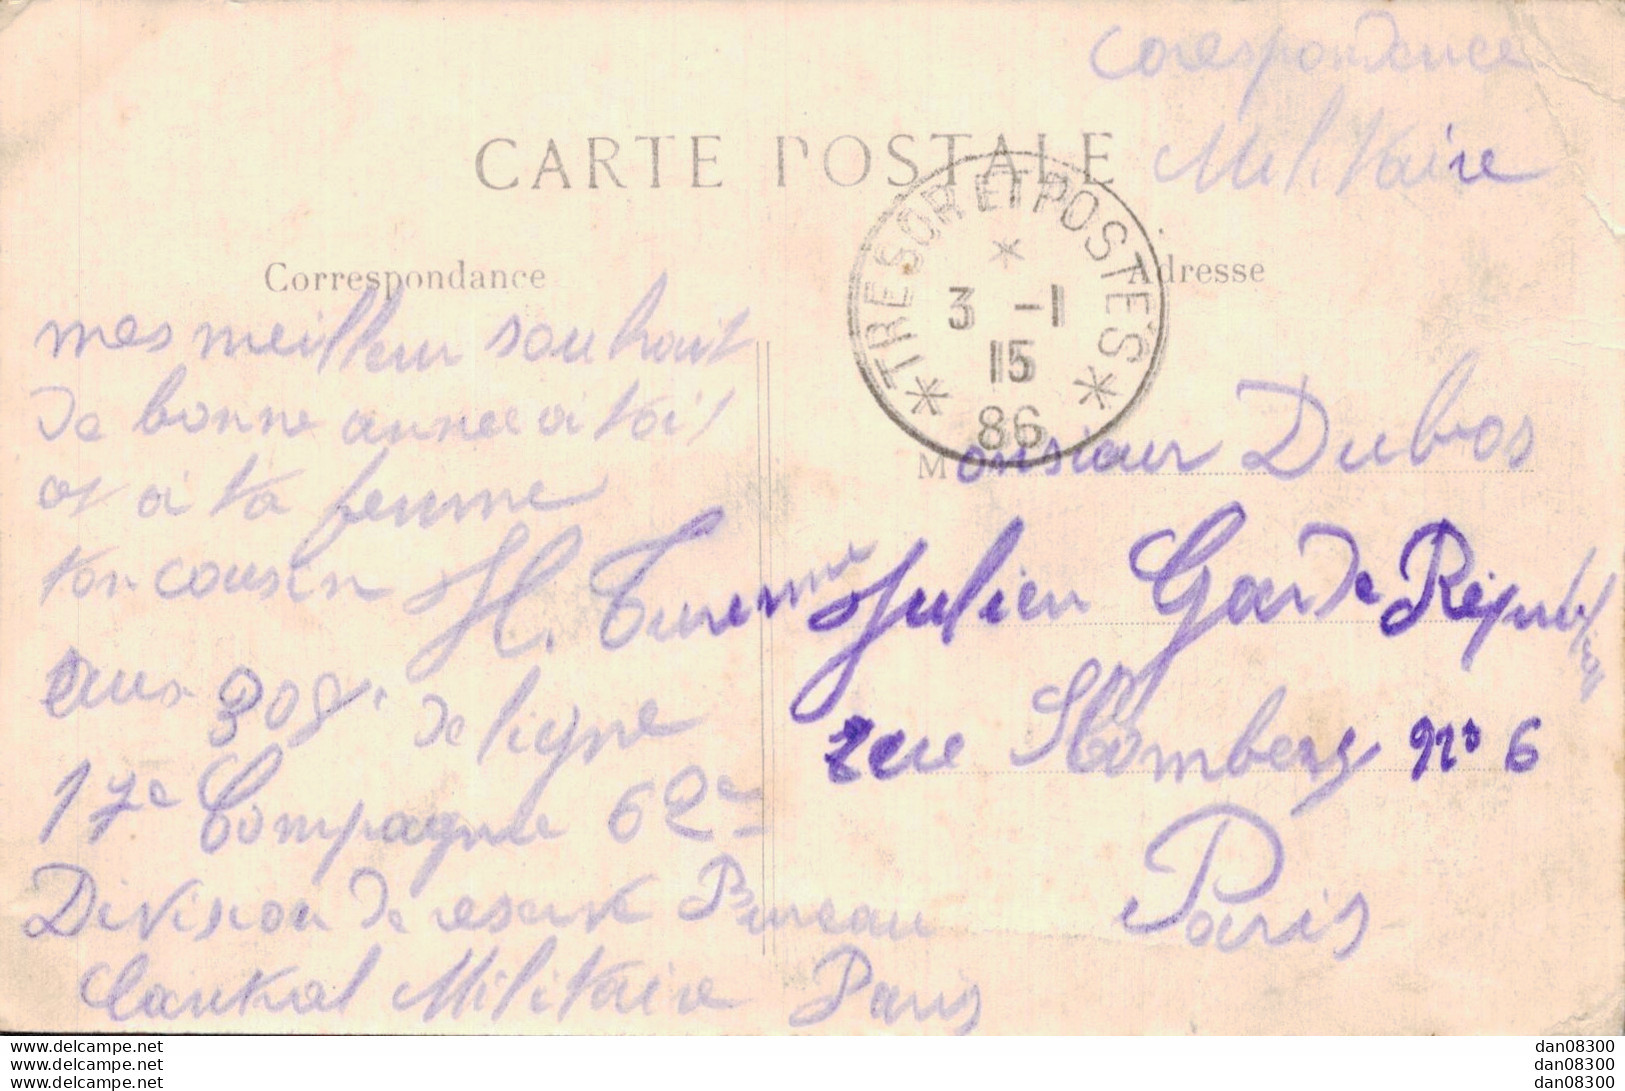 Corespondence
Militaire
CARTE POSTALE
TRESOR ET POSTES
3 -1
15
86
Correspondance
mes meilleur souhait
de bonne annee a toi
et a ta femme
ton cousin H.
au 308e de ligne
17e Compagnie 62e
Division de reserve Bureau
Cantral Militaire Paris
Adresse
Monsieur Dubos
Julien Garde Républ
rue Shomberg No 6
Paris
www.delcampe.net
www.delcampe.net
www.delcampe.net
dan08300
dan08300
dan08300